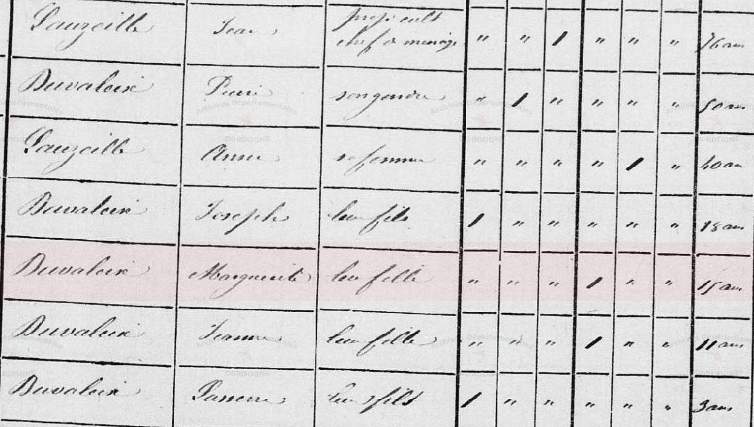 Lauzeille Jean prop. cult
chef de ménage " " 1 " " " 76 ans
Duvaleix Pierre son gendre " 1 " " " " 50 ans
Lauzeille Anne sa femme " " " " 1 " 40 ans
Duvaleix Joseph leur fils 1 " " " " " 18 ans
Duvaleix Marguerite leur fille " " " 1 " " 15 ans
Duvaleix Jeanne leur fille " " " 1 " " 11 ans
Duvaleix leur fils 1 " " " " " 3 ans